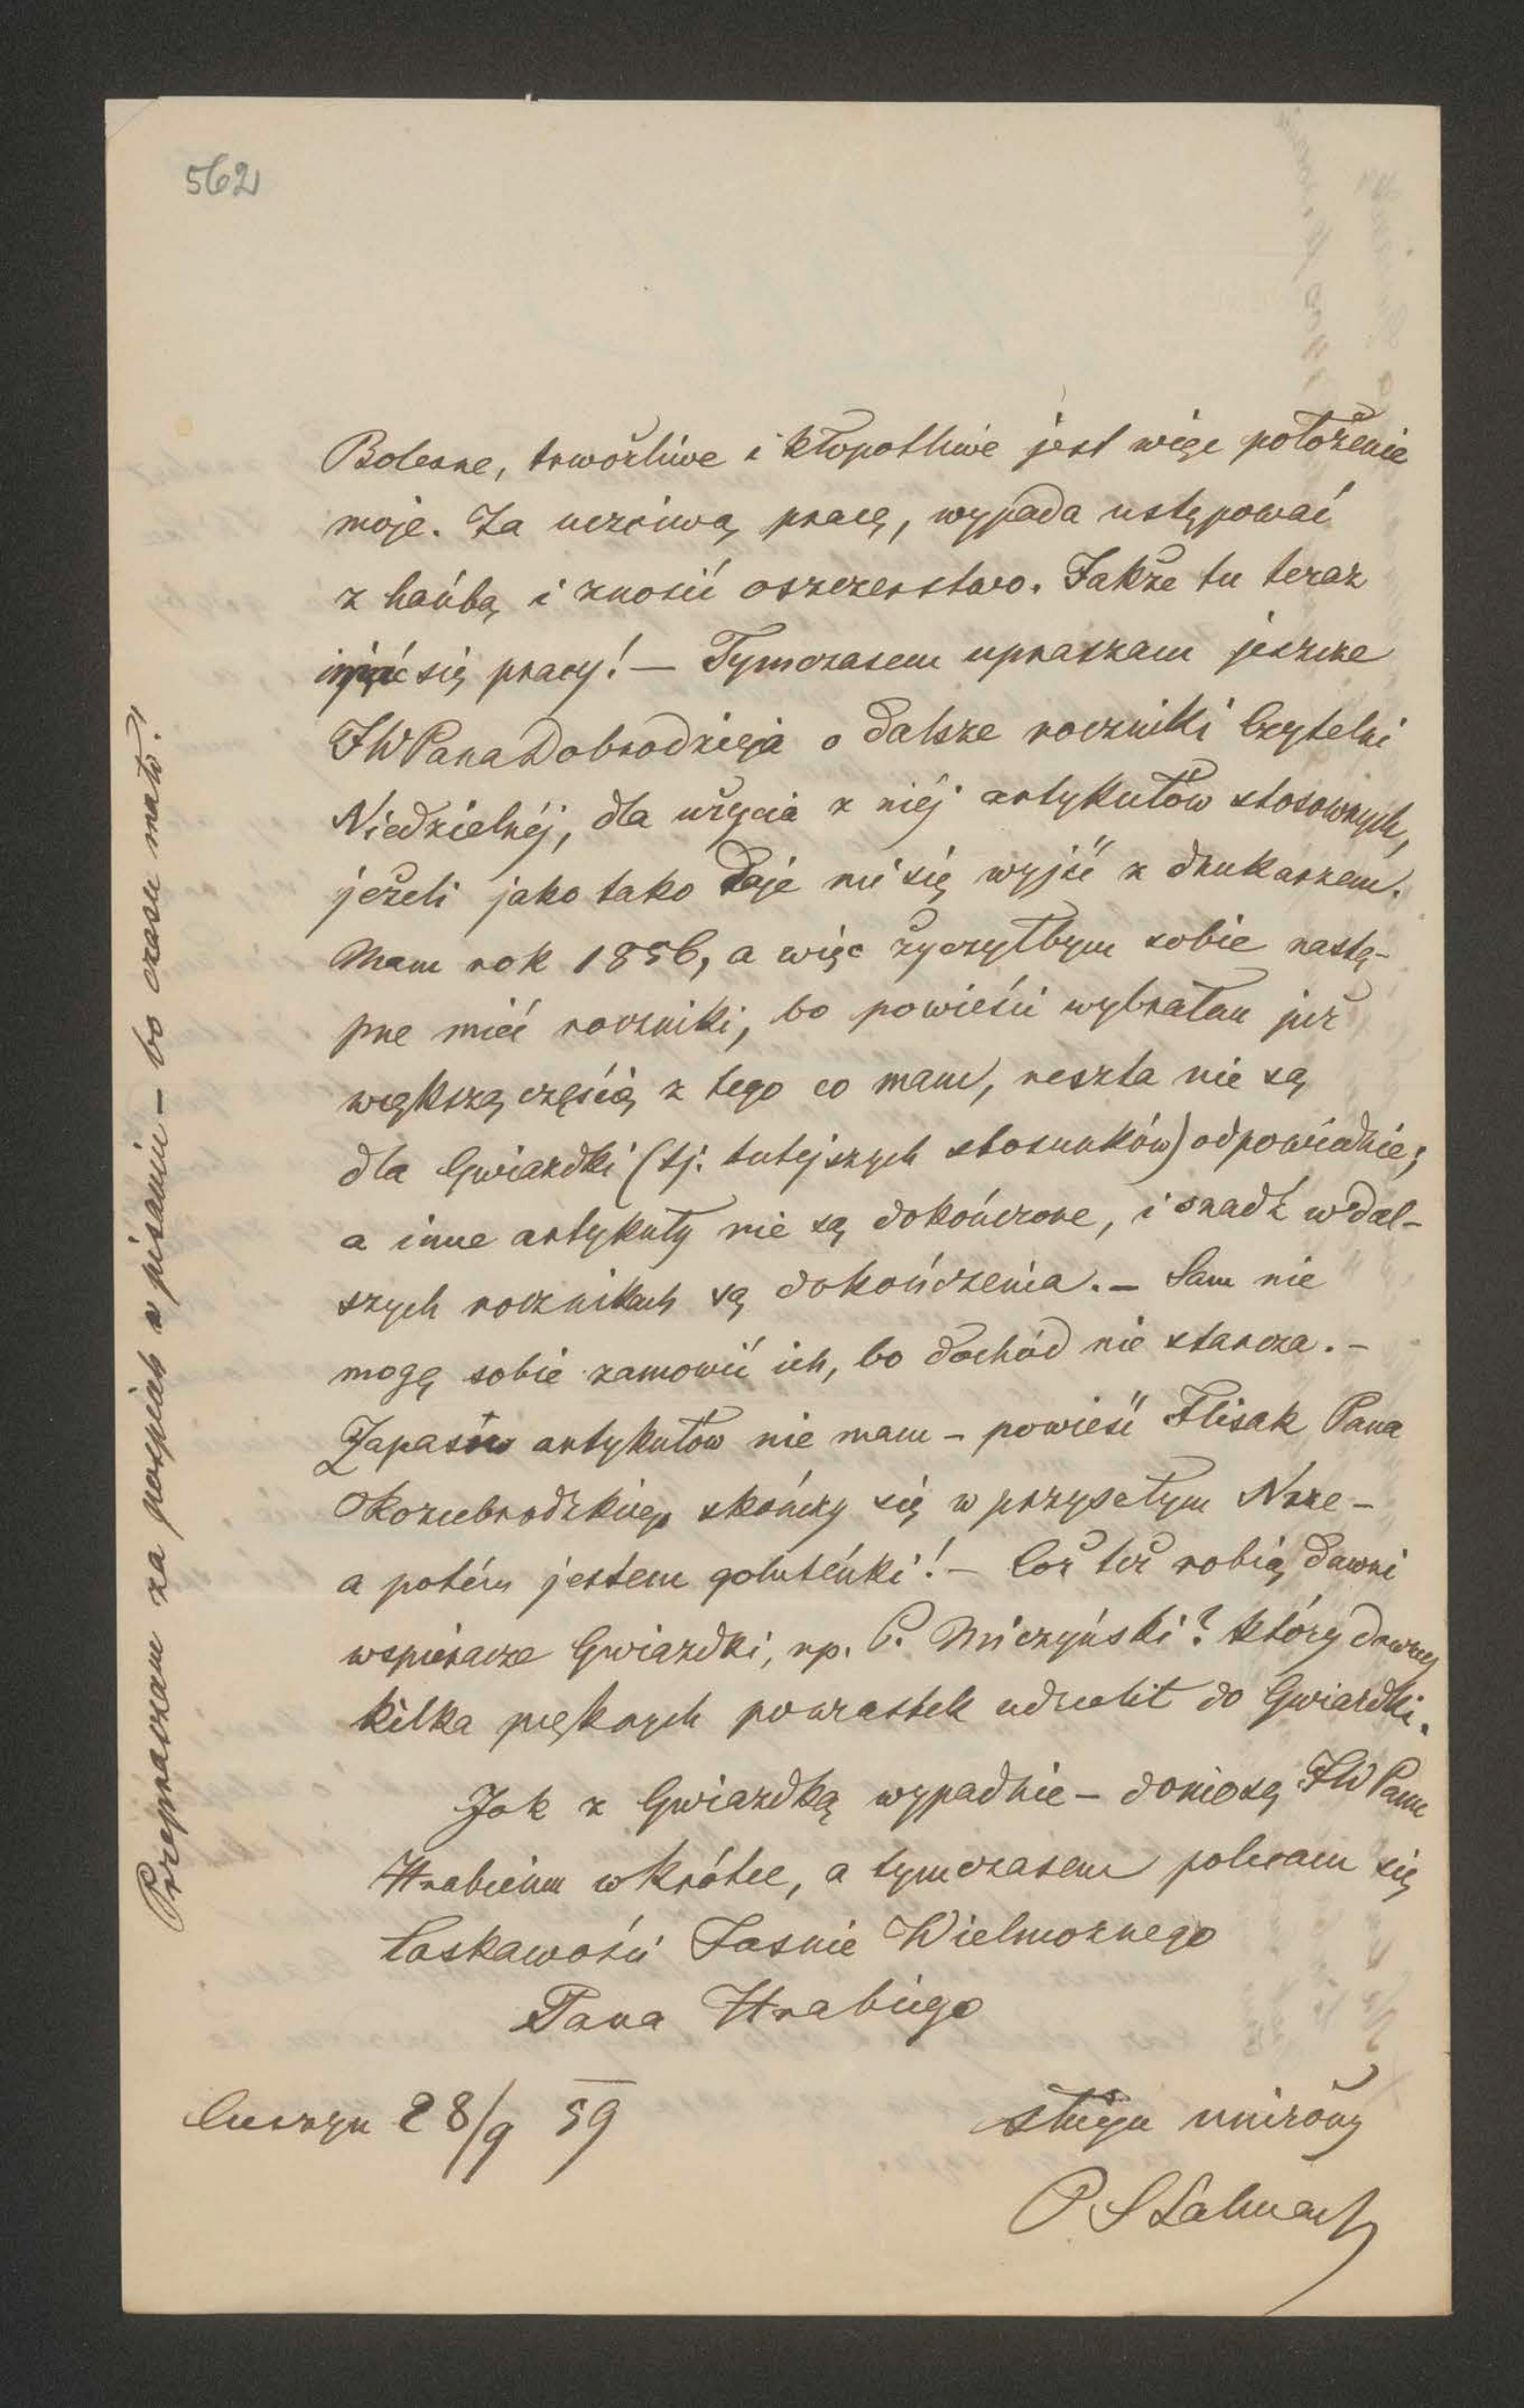 562
Bolesne, trwożliwe i kłopotliwe jest więc położenie
moje. Za uczciwą pracę, wypada ustępować
z hańbą i znosić oszczerstwo. Jakże tu teraz
jąć się pracy! — Tymczasem upraszam jeszcze
JWPana Dobrodzieja o dalsze roczniki Czytelni
Niedzielnéj, dla użycia z niéj artykułów stosownych,
jeżeli jako tako daje mi się wyjść z drukarzem.
Mam rok 1856, a więc życzyłbym sobie nastę-
pne mieć roczniki, bo powieści wybrałem już
większą częścią z tego co mam, reszta nie są
dla Gwiazdki (tj. tutejszych stosunków) odpowiednie;
a inne artykuły nie są dokończone, i snadź w dal-
szych rocznikach są dokończenia. — Sam nie
mogę sobie zamowić ich, bo dochód nie starcza. —
Zapasów artykułów nie mam — powieść Flisak Pana
Koziebrodzkiego skończy się w przyszłym Nrze —
a potém jestem goluteńki! — Cóż też robią dawni
wspieracze Gwiazdki, np. P. Miczyński? który dawniej
kilka pięknych powiastek udzielił do Gwiazdki.
Jak z Gwiazdką wypadnie — doniosę JWPanu
Hrabiemu wkrótce, a tymczasem polecam się
łaskawości Jaśnie Wielmożnego
Pana Hrabiego
Cieszyn 28/9 59
sługa uniżony
P. Stalmach
Przepraszam za pospiech w pisaniu — bo czasu mało!